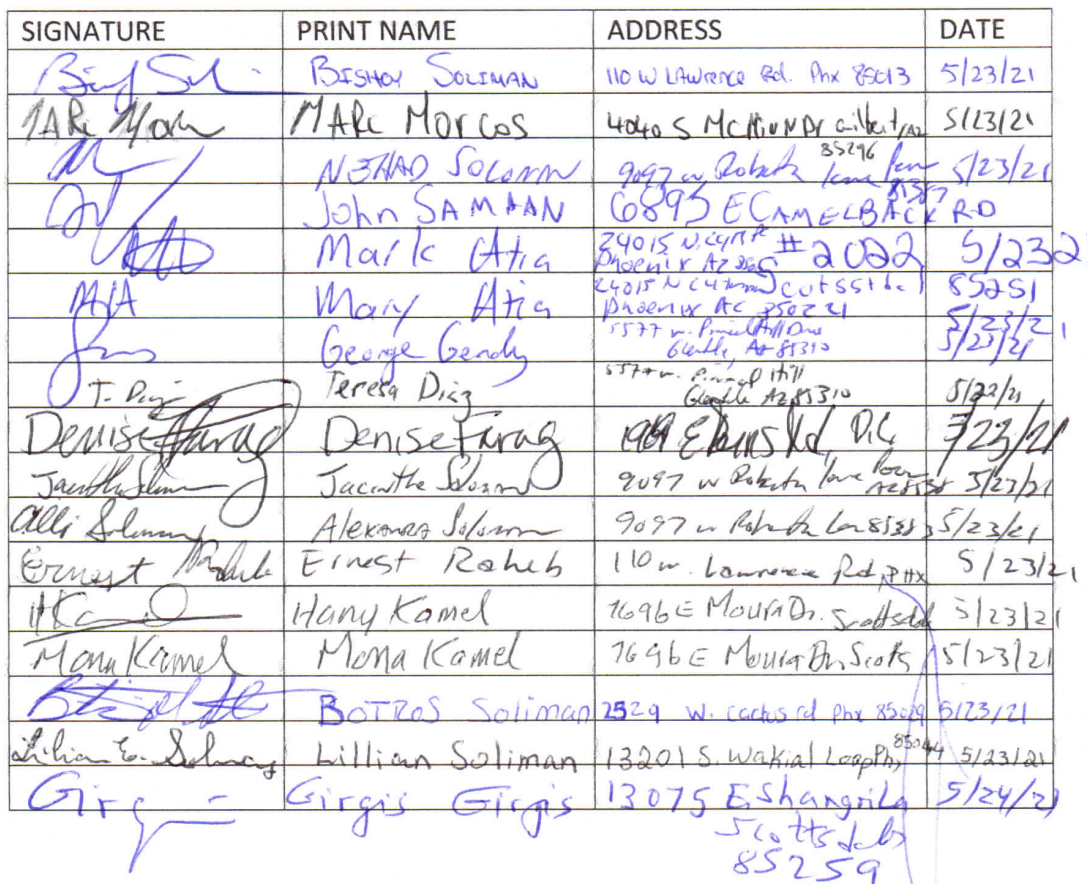 SIGNATURE PRINT NAME ADDRESS DATE
BISHOY SOLIMAN 110 W LAWrence Rd. Phx 85013 5/23/21
MARc Morcos MARc MorCos 4040 S Gilbert, AZ 85296 5/23/21
NEHAD Solomon 9097 w Roberta lane 5/23/21
John SAMAAN 6895 E CAMELBACK RD #2022 Scottsdal 85251
Mark Atia 24015 N. Phoenix AZ 5/23/2
MA Mary Atia 24015 N Phoenix 5/23/21
George Gendy 5577 w. Pinnacle Hill Drive Glendale, AZ 85310 5/23/21
T. Diaz Teresa Diaz 5577 w. Pinnacle Hill Glendale AZ 85310 5/22/21
Denise Farag Denise Farag 5/23/21
Jacinthe Solomon Jacinthe Solomon 9097 w Roberta lane 5/23/21
Alli Solomon Alexandra Solomon 9097 w Roberta Lane 5/23/21
Ernest Raheb Ernest Raheb 110 w. Lawrence Rd, PHX 5/23/21
HKa Hany Kamel 7696 E Moura Dr. Scottsdale 5/23/21
Mona Kamel Mona Kamel 7696 E Moura Dr. Scotts 5/23/21
BOTROS Soliman 2529 W. cactus rd Phx 85029 5/23/21
Lilian E. Soliman Lillian Soliman 13201 S. Wakial Loop Phx 85044 5/23/21
Girg Girgis Girgis 13075 E Shangrila Scottsdale 85259 5/24/21